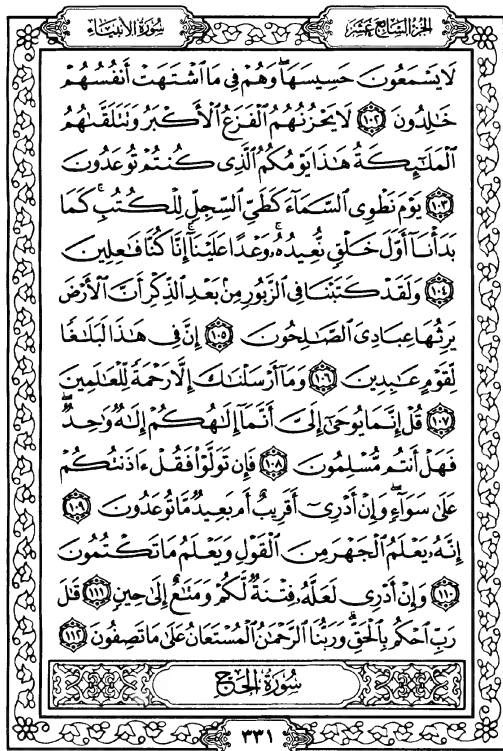 الجزء السابع عشر
سورة الأنبياء
لَا يَسْمَعُونَ حَسِيسَهَا ۖ وَهُمْ فِي مَا ٱشْتَهَتْ أَنفُسُهُمْ
خَٰلِدُونَ ١٠٢ لَا يَحْزُنُهُمُ ٱلْفَزَعُ ٱلْأَكْبَرُ وَتَتَلَقَّىٰهُمُ
ٱلْمَلَٰٓئِكَةُ هَٰذَا يَوْمُكُمُ ٱلَّذِي كُنتُمْ تُوعَدُونَ
١٠٣ يَوْمَ نَطْوِي ٱلسَّمَآءَ كَطَيِّ ٱلسِّجِلِّ لِلْكُتُبِ ۚ كَمَا
بَدَأْنَآ أَوَّلَ خَلْقٍ نُّعِيدُهُۥ ۚ وَعْدًا عَلَيْنَآ ۚ إِنَّا كُنَّا فَٰعِلِينَ
١٠٤ وَلَقَدْ كَتَبْنَا فِي ٱلزَّبُورِ مِنۢ بَعْدِ ٱلذِّكْرِ أَنَّ ٱلْأَرْضَ
يَرِثُهَا عِبَادِيَ ٱلصَّٰلِحُونَ ١٠٥ إِنَّ فِي هَٰذَا لَبَلَٰغًا
لِّقَوْمٍ عَٰبِدِينَ ١٠٦ وَمَآ أَرْسَلْنَٰكَ إِلَّا رَحْمَةً لِّلْعَٰلَمِينَ
١٠٧ قُلْ إِنَّمَا يُوحَىٰٓ إِلَيَّ أَنَّمَآ إِلَٰهُكُمْ إِلَٰهٌ وَٰحِدٌ ۖ
فَهَلْ أَنتُم مُّسْلِمُونَ ١٠٨ فَإِن تَوَلَّوْا۟ فَقُلْ ءَاذَنتُكُمْ
عَلَىٰ سَوَآءٍ ۖ وَإِنْ أَدْرِيٓ أَقَرِيبٌ أَم بَعِيدٌ مَّا تُوعَدُونَ ١٠٩
إِنَّهُۥ يَعْلَمُ ٱلْجَهْرَ مِنَ ٱلْقَوْلِ وَيَعْلَمُ مَا تَكْتُمُونَ
١١٠ وَإِنْ أَدْرِي لَعَلَّهُۥ فِتْنَةٌ لَّكُمْ وَمَتَٰعٌ إِلَىٰ حِينٍ ١١١ قَٰلَ
رَبِّ ٱحْكُم بِٱلْحَقِّ ۗ وَرَبُّنَا ٱلرَّحْمَٰنُ ٱلْمُسْتَعَانُ عَلَىٰ مَا تَصِفُونَ ١١٢
سُورَةُ الحَجّ
٣٣١